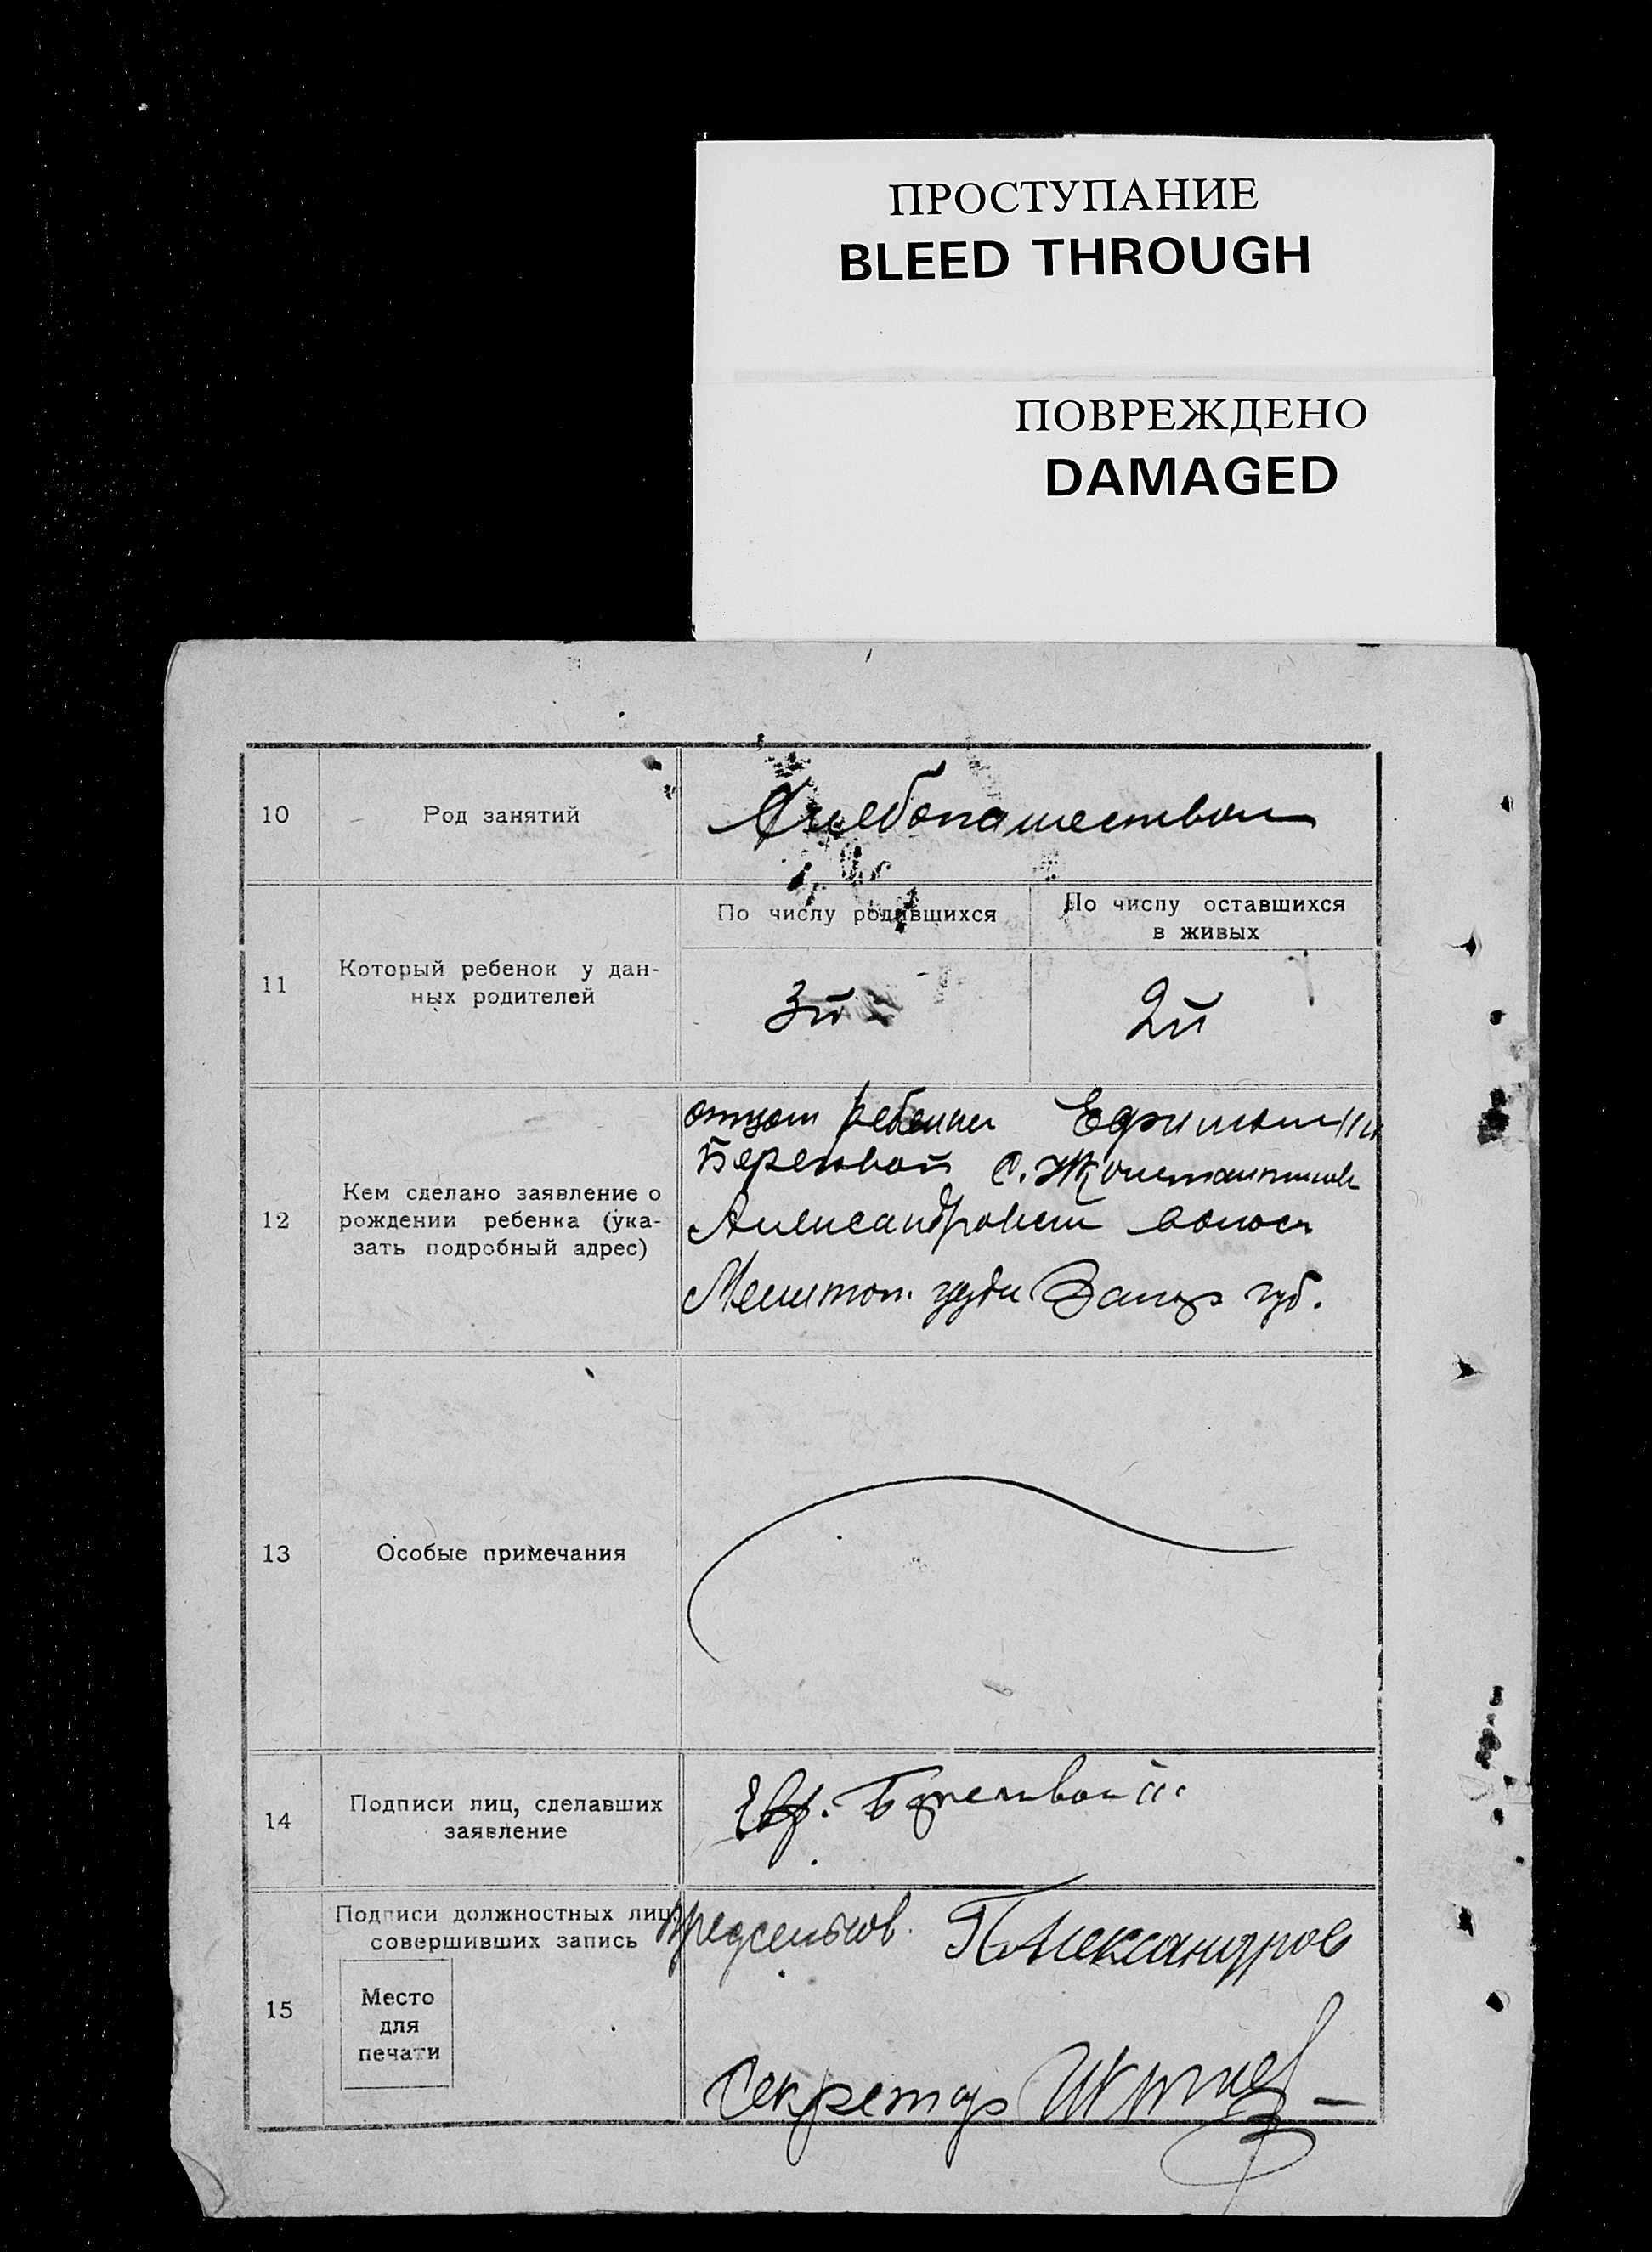 ПРОСТУПАНИЕ
BLEED THROUGH
ПОВРЕЖДЕНО
DAMAGED
10
Род занятий
Хлебопашеством
11
Который ребенок у дан-
ных родителей
По числу родившихся
3й
По числу оставшихся
в живых
2й
12
Кем сделано заявление о
рождении ребенка (ука-
зать подробный адрес)
отцом ребенка
с. Константиновк
Александровск волос
Мелитоп. уезда Запор губ.
13
Особые примечания
14
Подписи лиц, сделавших
заявление
15
Подписи должностных лиц,
совершивших запись
Место
для
печати
Предсельсов. П. Александров
Секретар